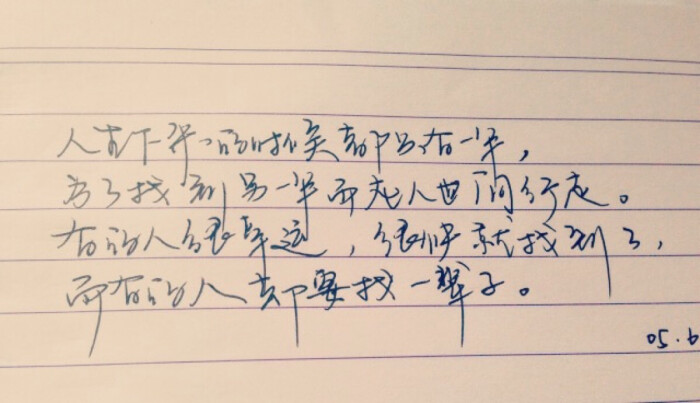 人生下来的时候都只有一半，
为了找到另一半而在人世间行走。
有的人很幸运，很快就找到了，
而有的人却要找一辈子。
05.6